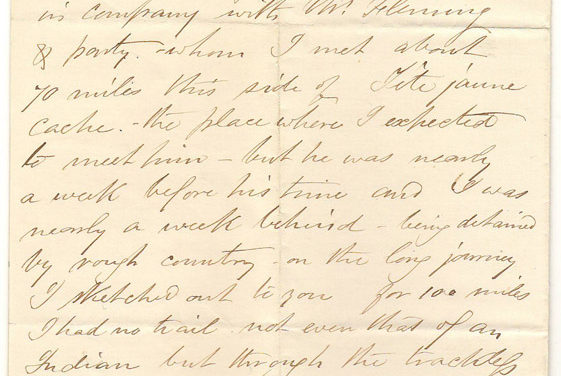 in company with Mr. Fleming
& party. - whom I met about
70 miles this side of Tête jaune
cache. - the place where I expected
to meet him - but he was nearly
a week before his time and I was
nearly a week behind - being detained
by rough country - on the long journey
I sketched out to you for 100 miles
I had no trail. not even that of an
Indian but through the trackless